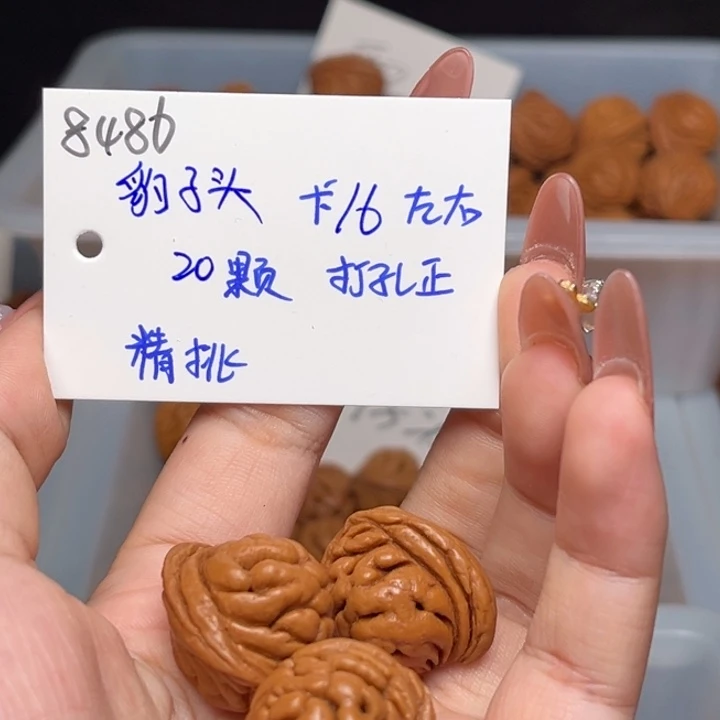 8486
豹子头 卡16 左右
20颗 打孔正
精挑